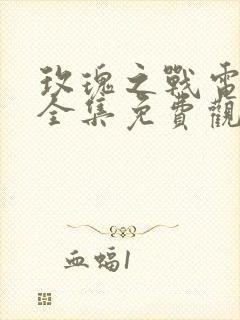 玫瑰之戰電
全集免費觀
血蝠1